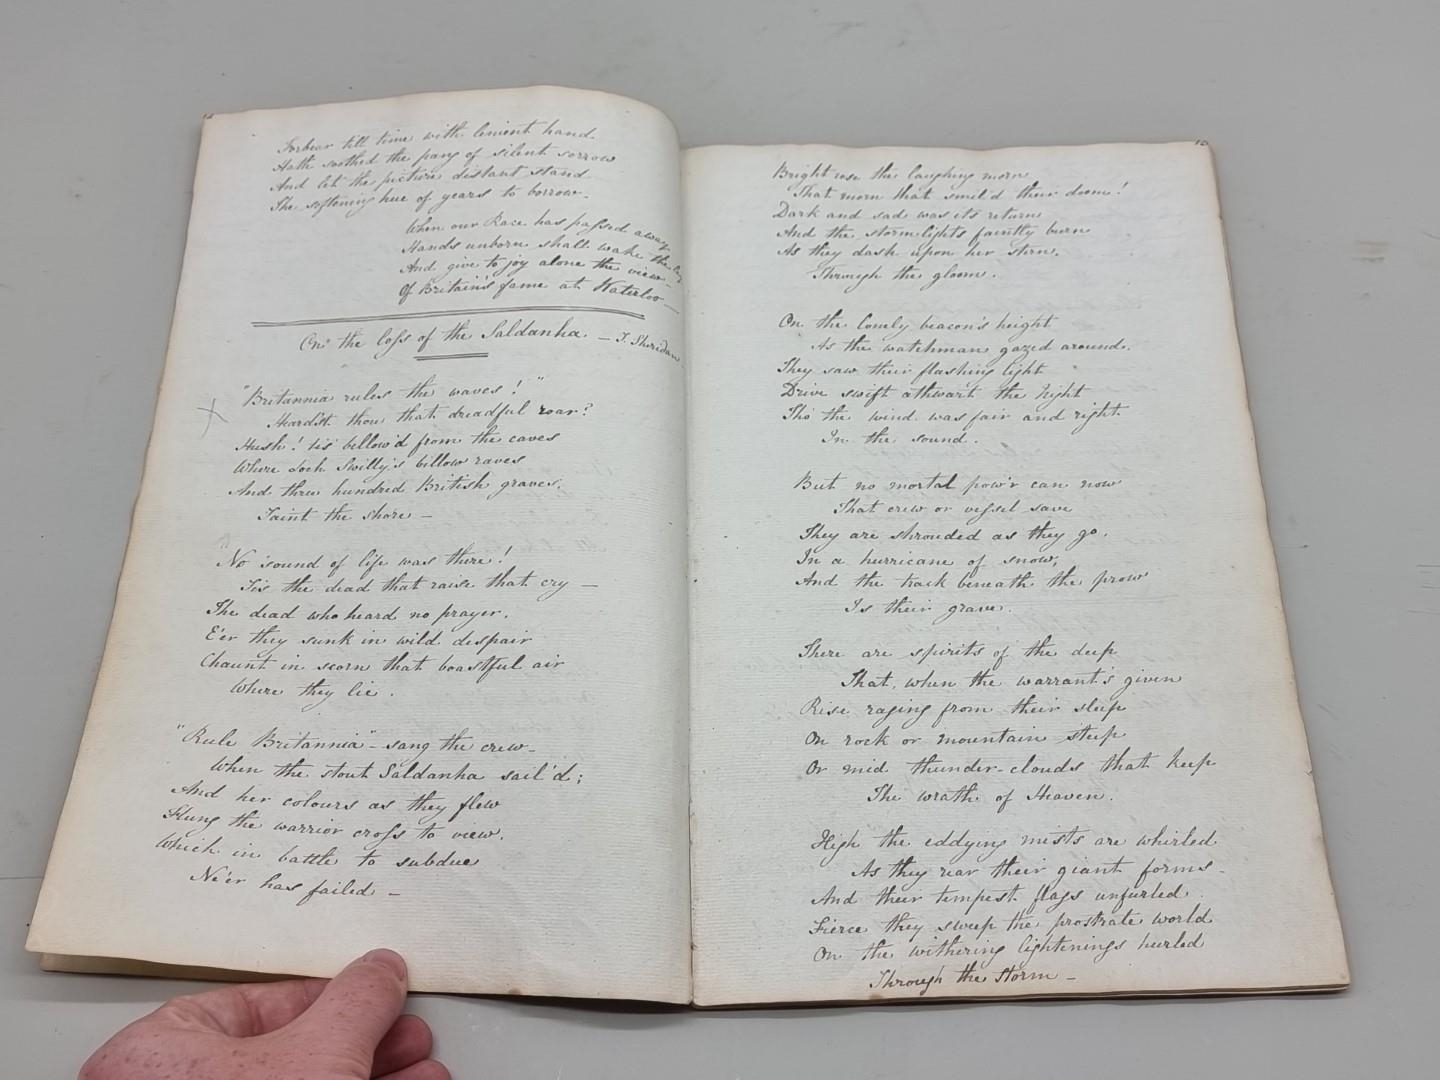 12
Forbear till time with lenient hand
Hath soothed the pang of silent sorrow
And let the picture distant stand
The softening hue of years to borrow.
When our Race has passed away
Hands unborn shall wake the lay
And give to joy alone the view
Of Britain's fame at Waterloo —
On the loss of the Saldanha — T. Sheridan
"Britannia rules the waves!"
Heardst thou that dreadful roar?
Hush! tis bellow'd from the caves
Where Loch Swilly's billow raves
And three hundred British graves
Taint the shore —
No sound of life was there!
Tis the dead that raise that cry —
The dead who heard no prayer.
E'er they sunk in wild despair
Chaunt in scorn that boastful air
Where they lie.
"Rule Britannia" - sang the crew -
When the stout Saldanha sail'd;
And her colours as they flew
Flung the warrior cross to view.
Which in battle to subdue
Ne'er has failed —
13
Bright rose the laughing morn
That morn that smil'd their doom!
Dark and sad was its return
And the storm lights faintly burn
As they dash upon her stern.
Through the gloom.
On the lonely beacon's height
As the watchman gazed around.
They saw their flashing light
Drive swift athwart the night
Tho' the wind was fair and right
In the sound.
But no mortal pow'r can now
That crew or vessel save
They are shrouded as they go.
In a hurricane of snow;
And the track beneath the prow
Is their grave.
There are spirits of the deep
That, when the warrant's given
Rise raging from their sleep
On rock or mountain steep
Or mid thunder-clouds that keep
The wrath of Heaven.
High the eddying mists are whirled
As they rear their giant forms -
And their tempest flags unfurled
Fierce they sweep the prostrate world
On the withering lightenings hurled
Through the Storm —